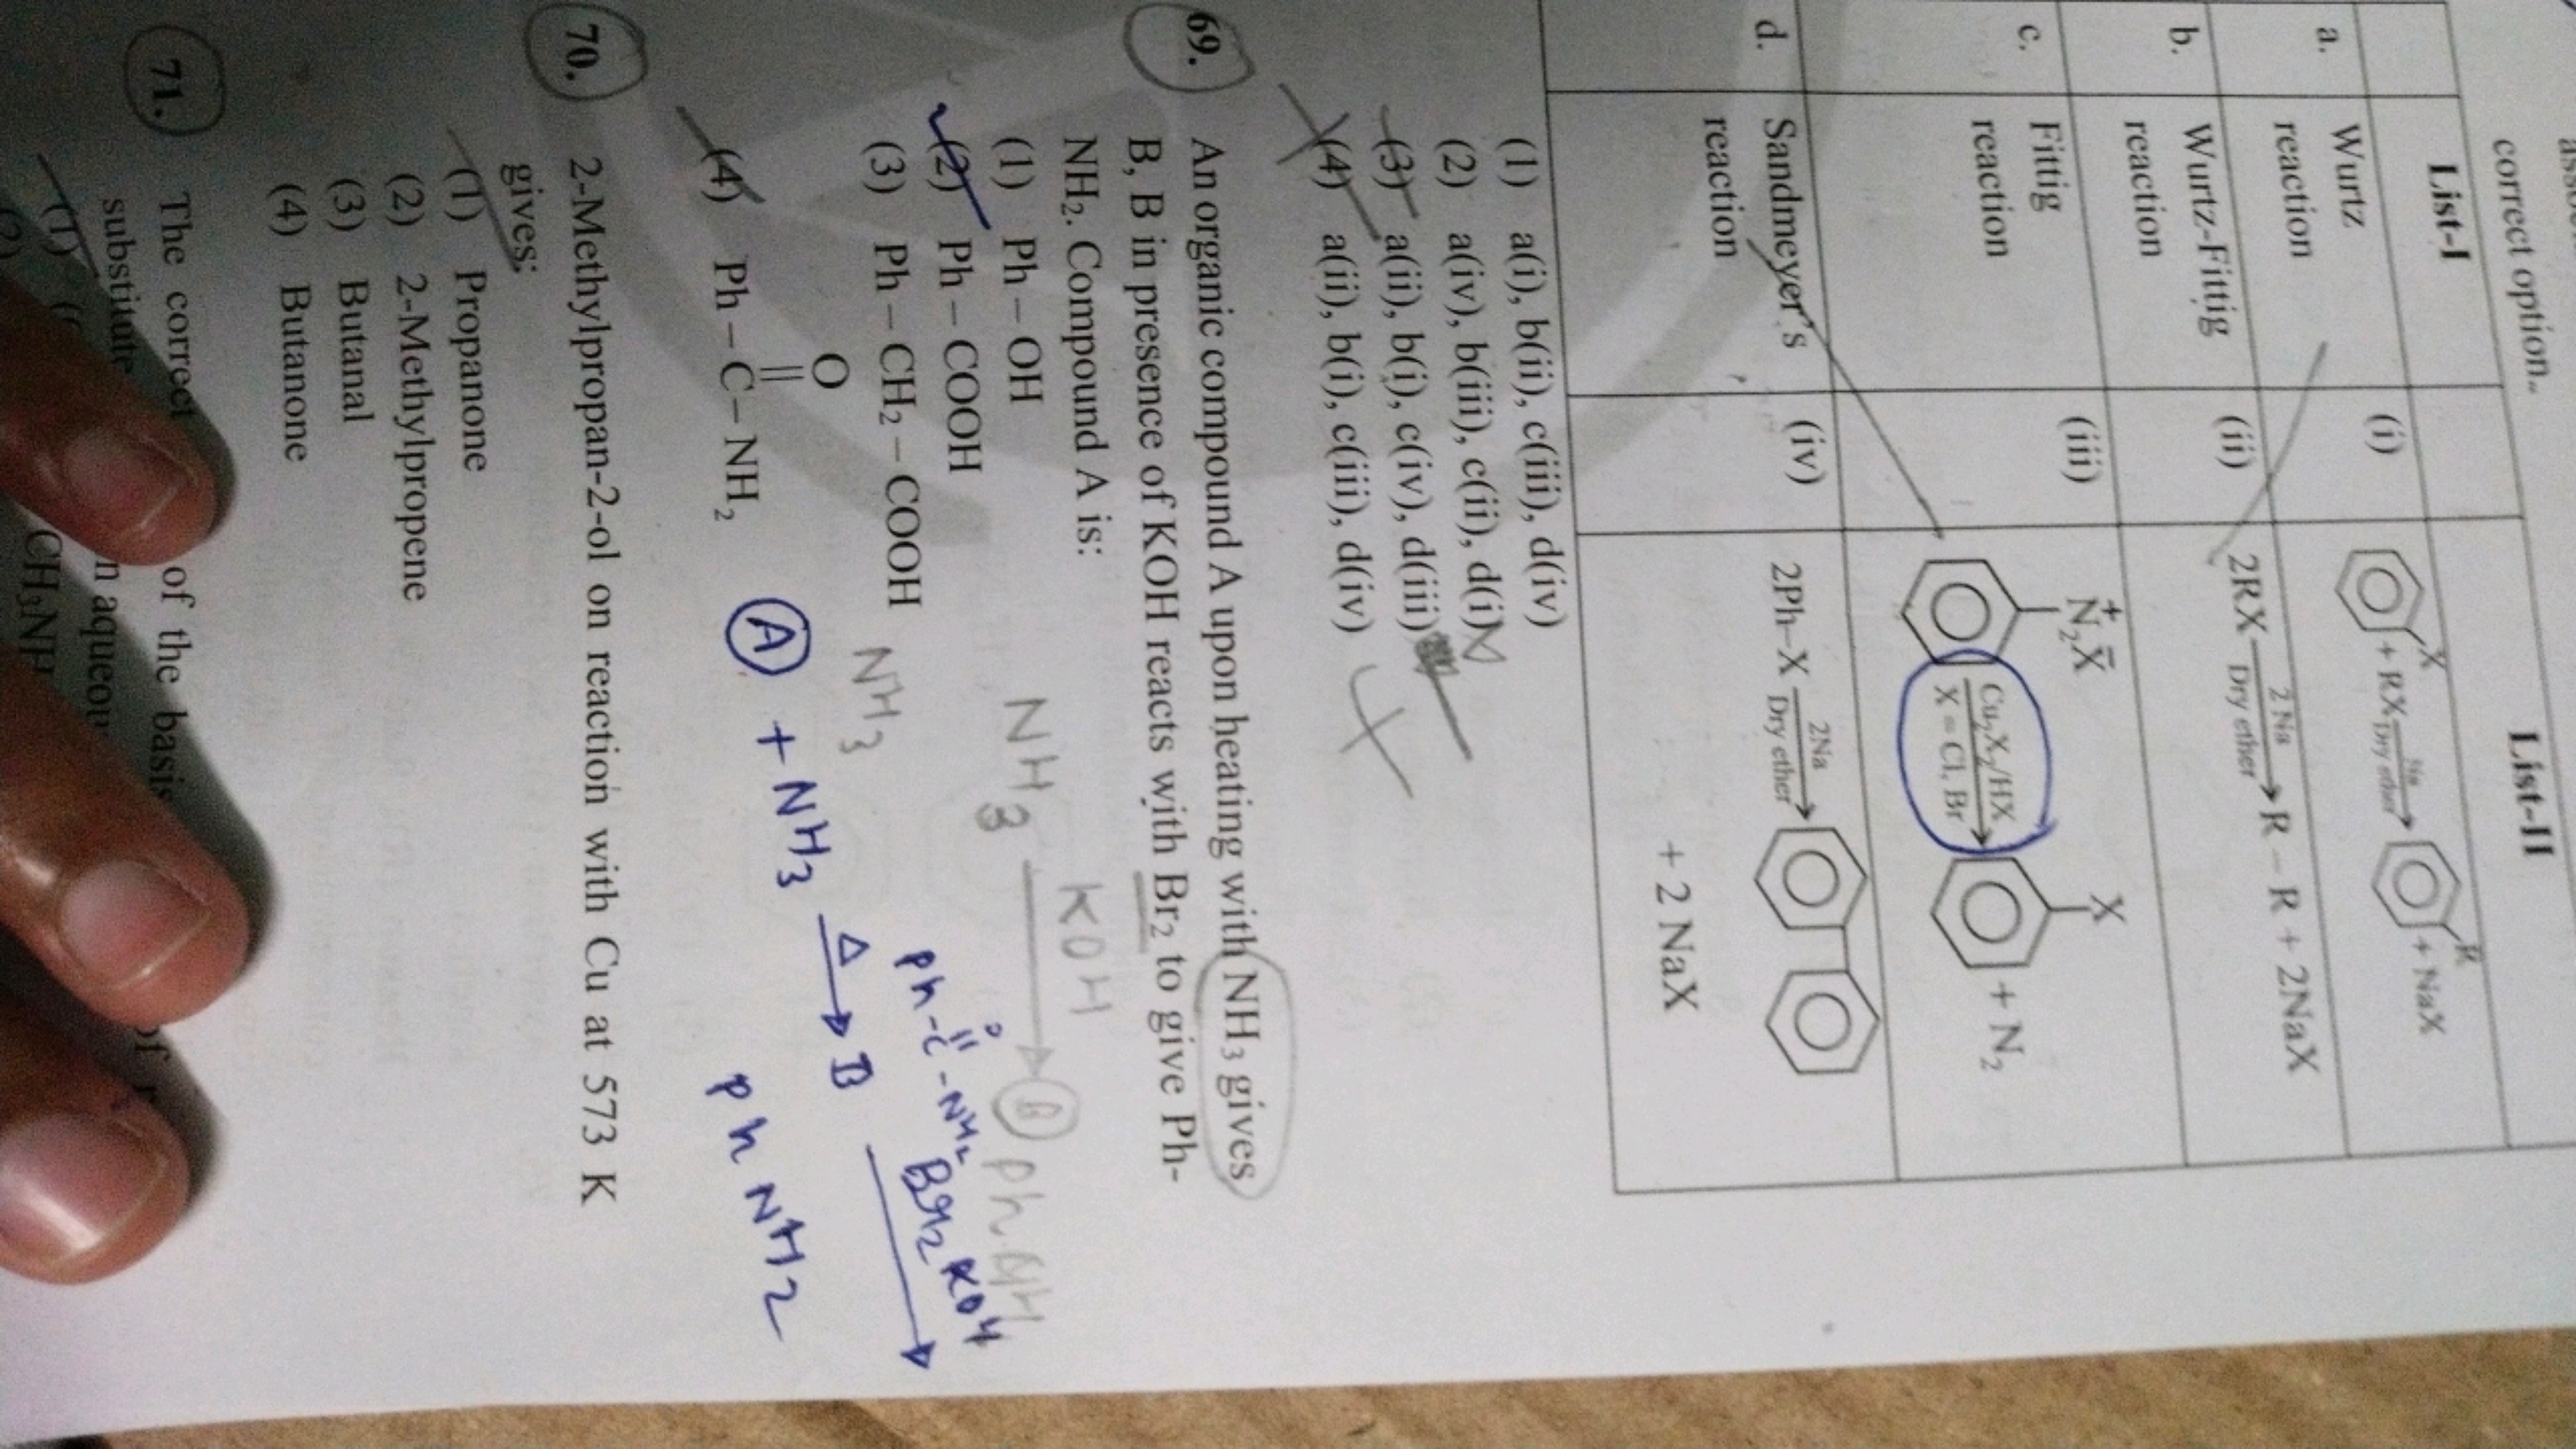 correct option.
List-I List-II
a. Wurtz reaction (i) X + RX Na Dry ether → R + NaX
b. Wurtz-Fittig reaction (ii) 2RX 2 Na Dry ether → R – R + 2NaX
c. Fittig reaction (iii) N₂⁺X⁻ Cu₂X₂/HX X = Cl, Br → X + N₂
d. Sandmeyer's reaction (iv) 2Ph–X 2Na Dry ether →
+ 2 NaX
(1) a(i), b(ii), c(iii), d(iv)
(2) a(iv), b(iii), c(ii), d(i)
(3) a(ii), b(i), c(iv), d(iii)
(4) a(ii), b(i), c(iii), d(iv)
69. An organic compound A upon heating with NH₃ gives
B, B in presence of KOH reacts with Br₂ to give Ph-
NH₂. Compound A is:
(1) Ph – OH
(2) Ph – COOH
(3) Ph – CH₂ – COOH
O
||
(4) Ph – C – NH₂
KOH
NH₃ → B
NH₃
O
||
Ph-C-NH₂
A + NH₃ Δ → B Br₂ KOH →
Ph NH2
70. 2-Methylpropan-2-ol on reaction with Cu at 573 K
gives:
(1) Propanone
(2) 2-Methylpropene
(3) Butanal
(4) Butanone
71. The correct of the basis of
substitute aqueou
(1)
CH₃NH